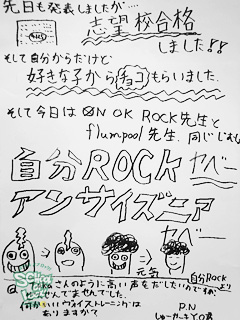 先日も発表しましたが…
志望校合格
しました!!
そして自分からだけど
好きな子からチョコもらいました.
そして今日は ONE OK ROCK先生と
flumpool先生.同じじ
自分ROCK ヤベー
アンサイズニア
ヤベー
元気
自分ROCK
Takaさんのように高い声をだしたいのですが、
ぜんぜんでませんでした。
何かいいヴォイストレーニングは
ありますか?
P.N